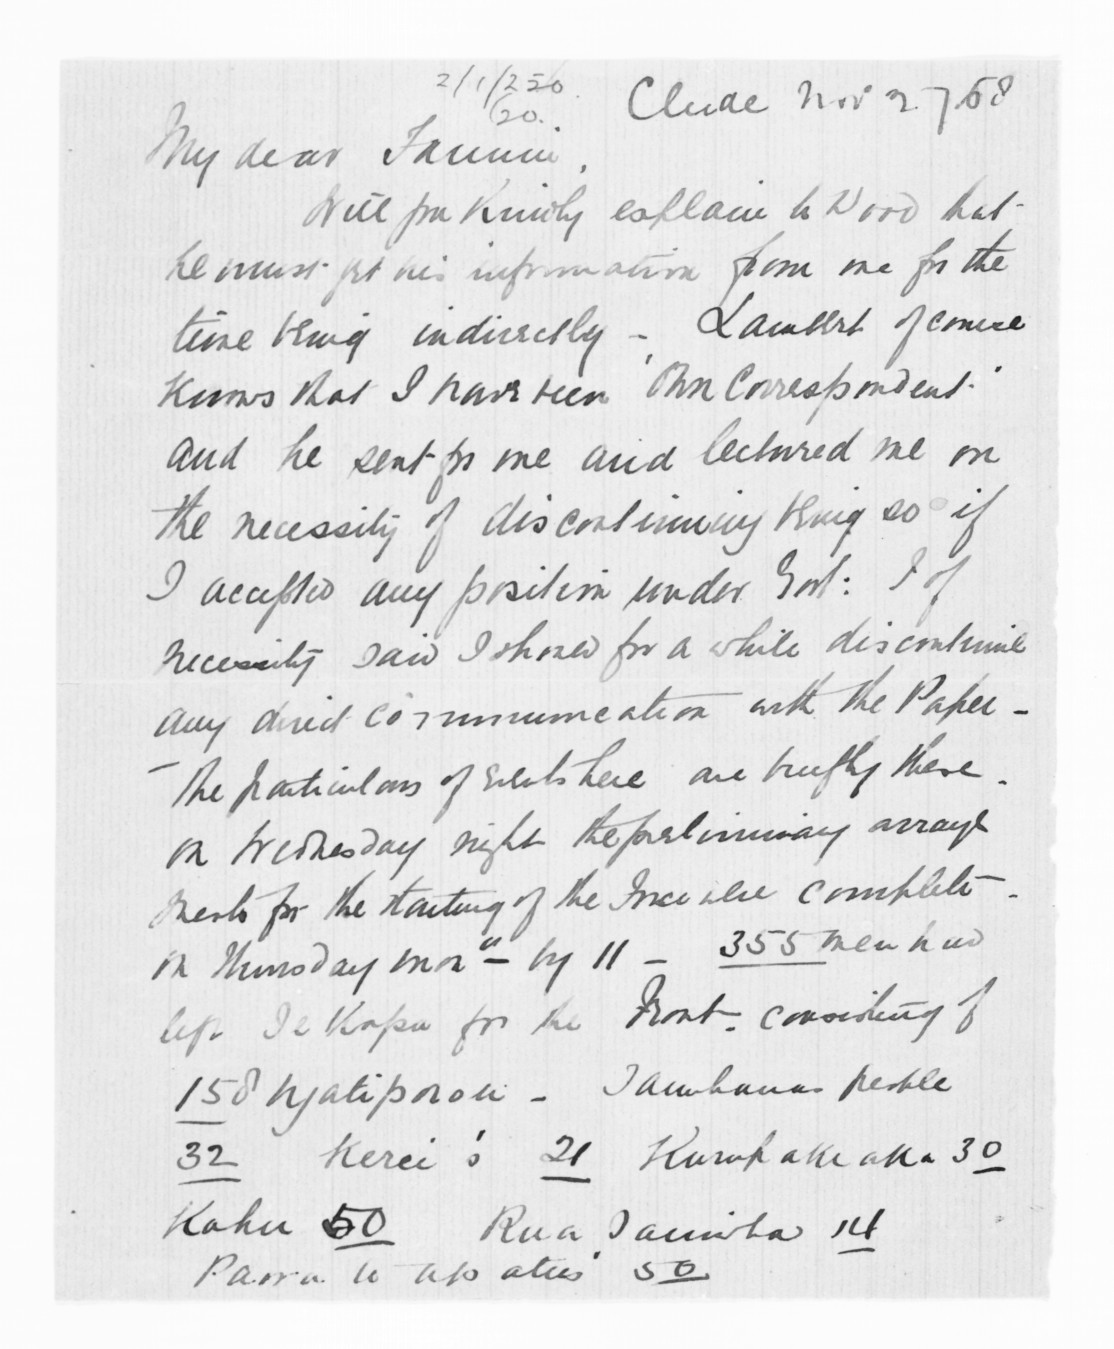 2/1/250
20.
Clyde Nov 27/68
My dear Fannin,
Will you Kindly explain to Wood that
he must get his information from me for the
time being indirectly - Lambert of course
Knows that I have been 'Own Correspondent'
and he sent for me and lectured me on
the necessity of discontinuing being so if
I accepted any position under Govt: I of
necessity said I should for a while discontinue
any direct communication with the Paper -
- The particulars of events here are briefly these.
On Wednesday night the preliminary arrange
ments for the starting of the Force were complete -
On Thursday morng - by 11 - 355 men had
left Te Kapu for the Front. consisting of
158 Ngatiporou - Tamihanas people
32 Kerei's 21 Karukakeaka 30
Kahu 50 Rua Tamiha 14
50